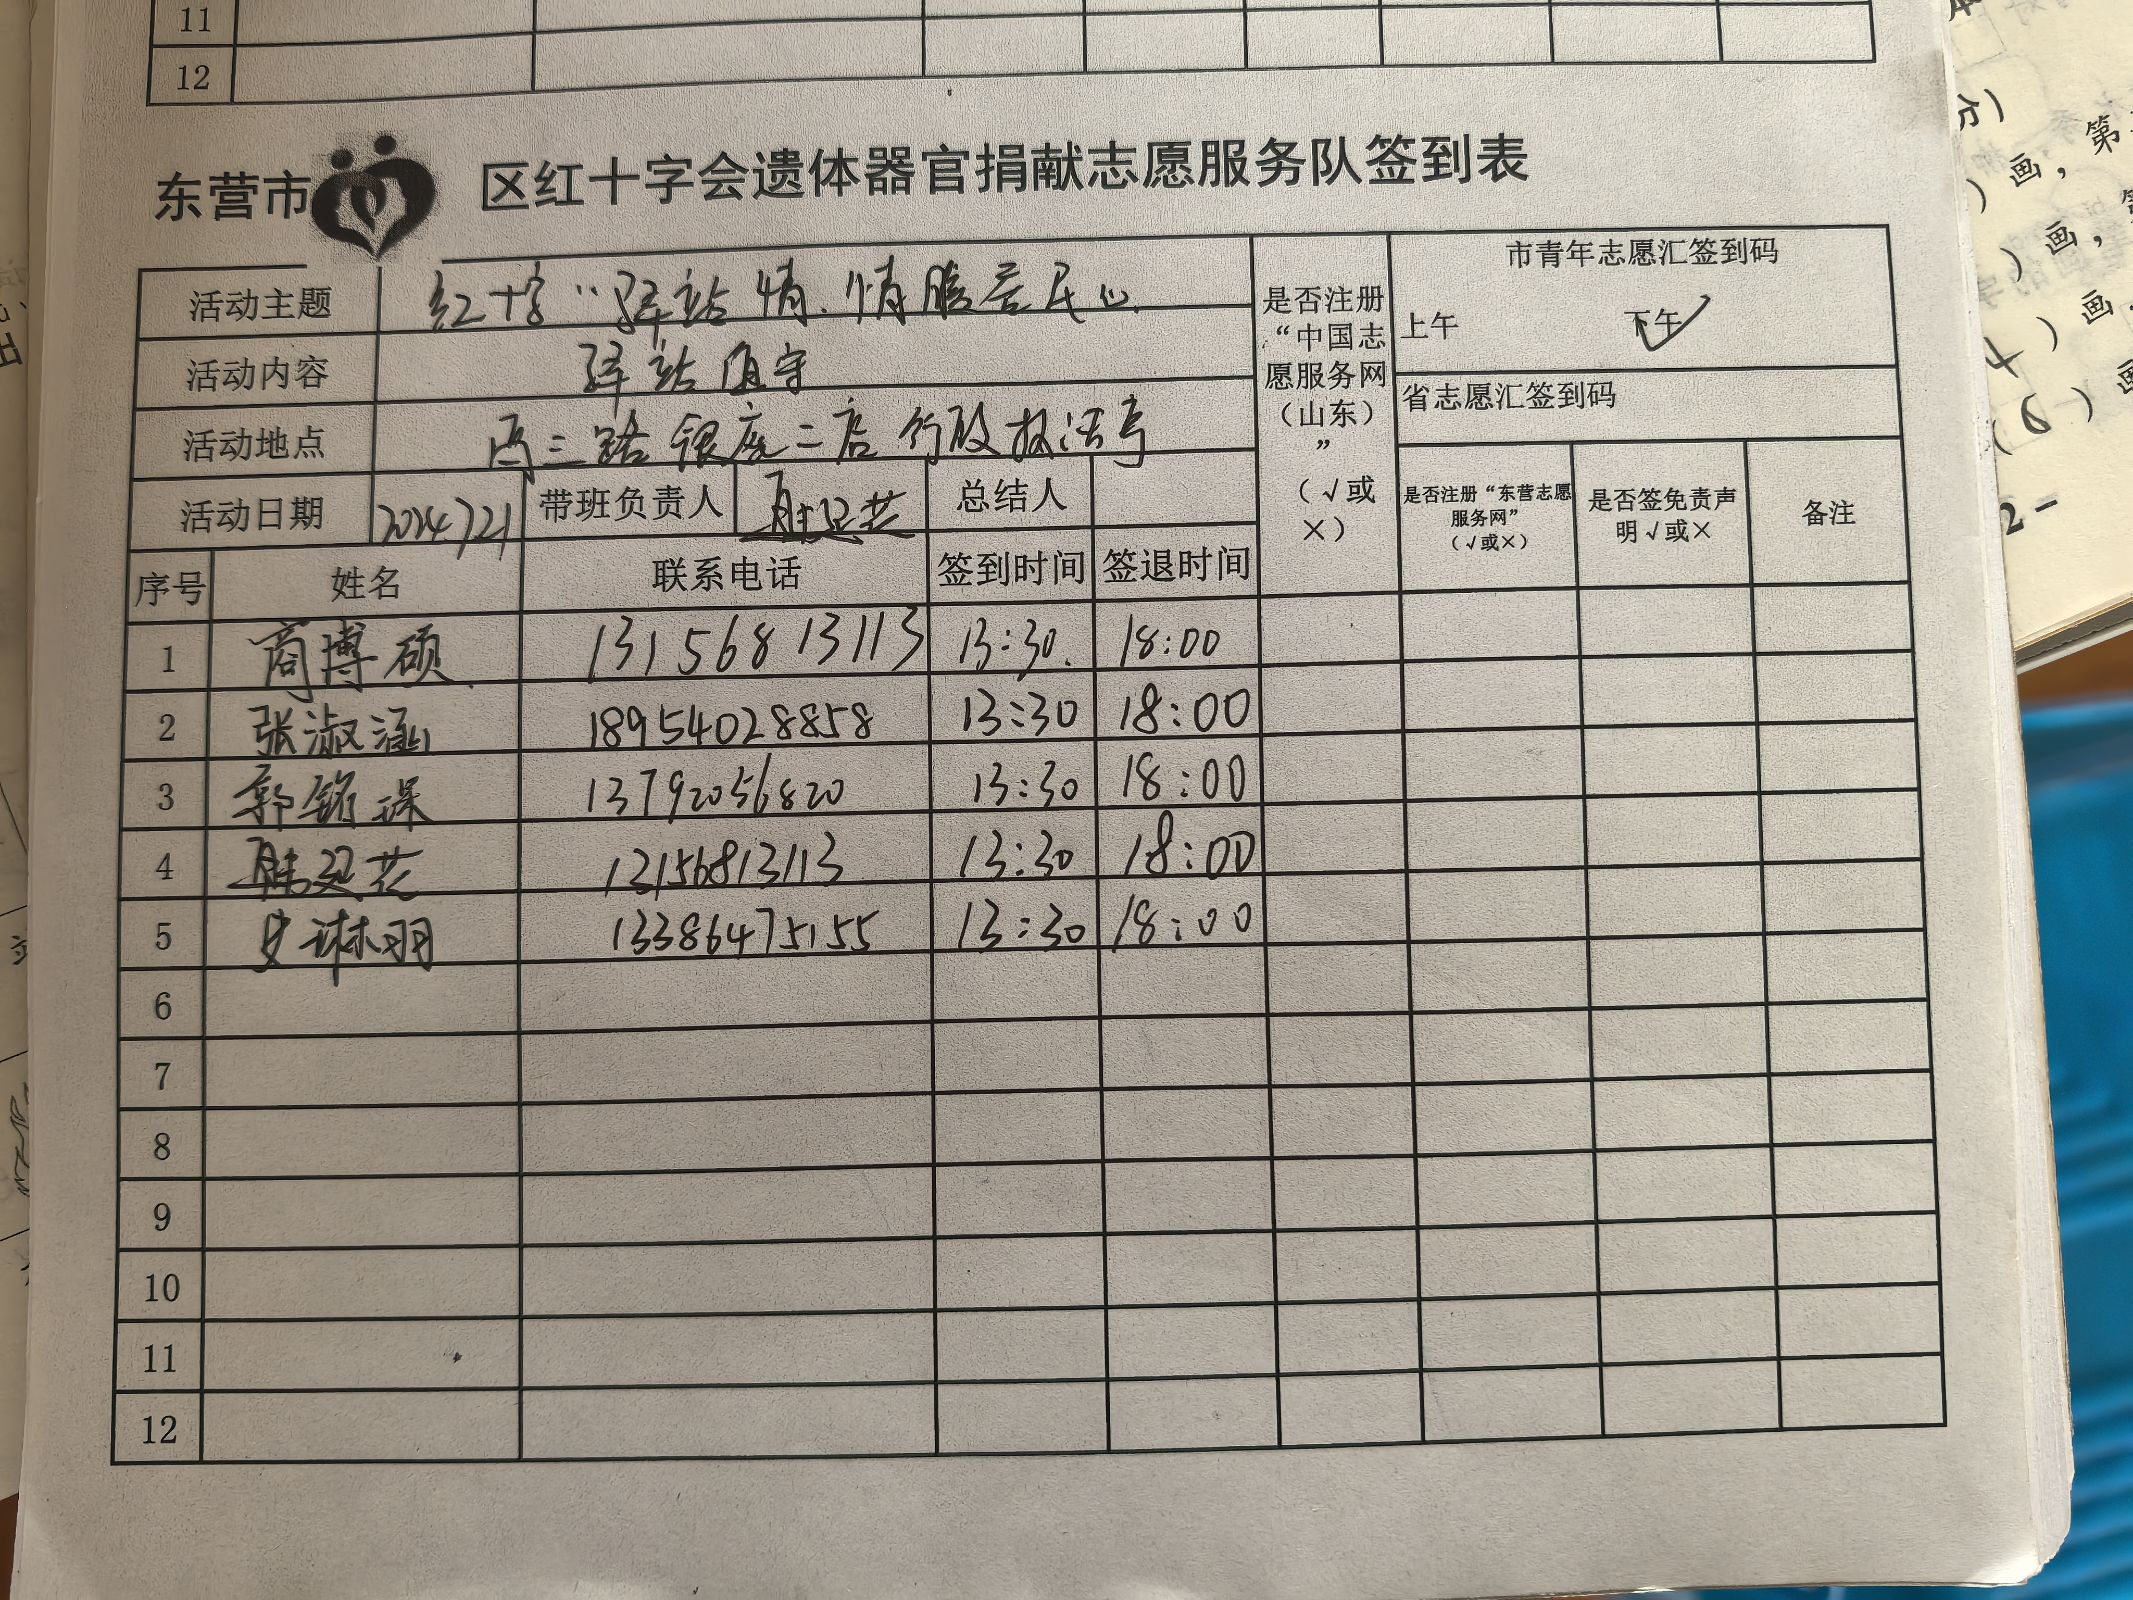 11
12
东营市 区红十字会遗体器官捐献志愿服务队签到表
活动主题 红十字“驿站情、情暖居民心
活动内容 驿站值守
活动地点 西三路银座二店行政执法亭
活动日期 2024721 带班负责人 总结人
是否注册“中国志愿服务网（山东）”（√或×）
市青年志愿汇签到码
上午 下午 ✓
省志愿汇签到码
是否注册“东营志愿服务网”（√或×） 是否签免责声明√或× 备注
序号 姓名 联系电话 签到时间 签退时间
1 商博硕 13156813113 13:30 18:00
2 张淑涵 18954028858 13:30 18:00
3 郭铭琛 13792056820 13:30 18:00
4 13156813113 13:30 18:00
5 史琳羽 13386475155 13:30 18:00
6
7
8
9
10
11
12
分）
）画，第
）画，第
4）画，
（6）画
2-